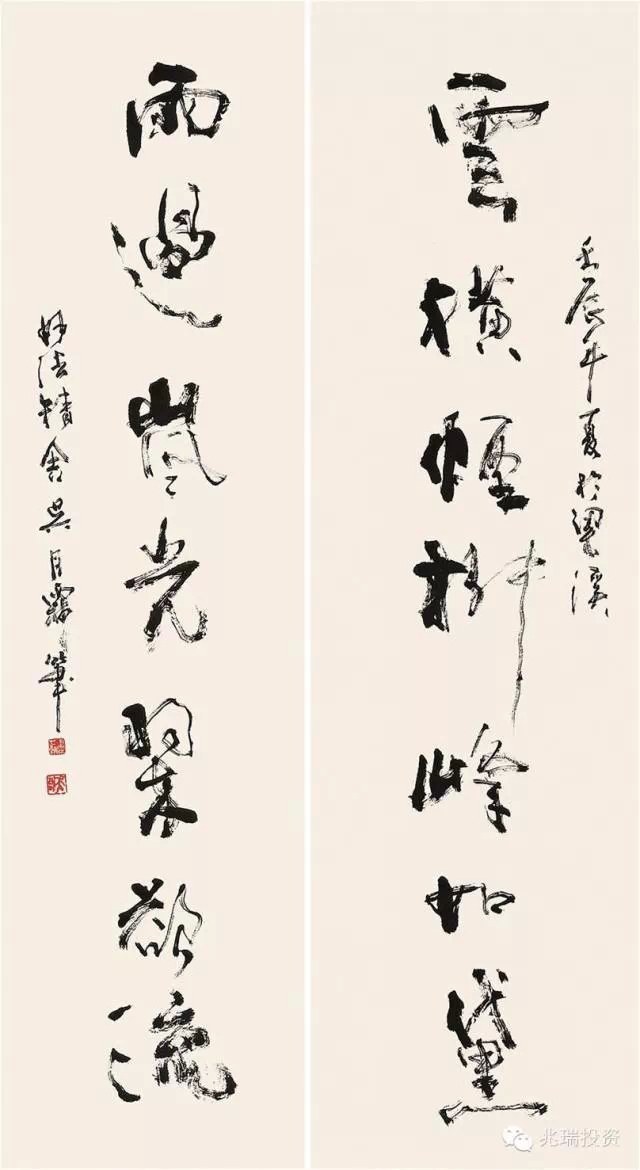 壬辰年夏於梁溪
雲橫煙柳峰如黛
雨過嵐光翠欲流
妙法精舍吳霖筆
兆瑞投资